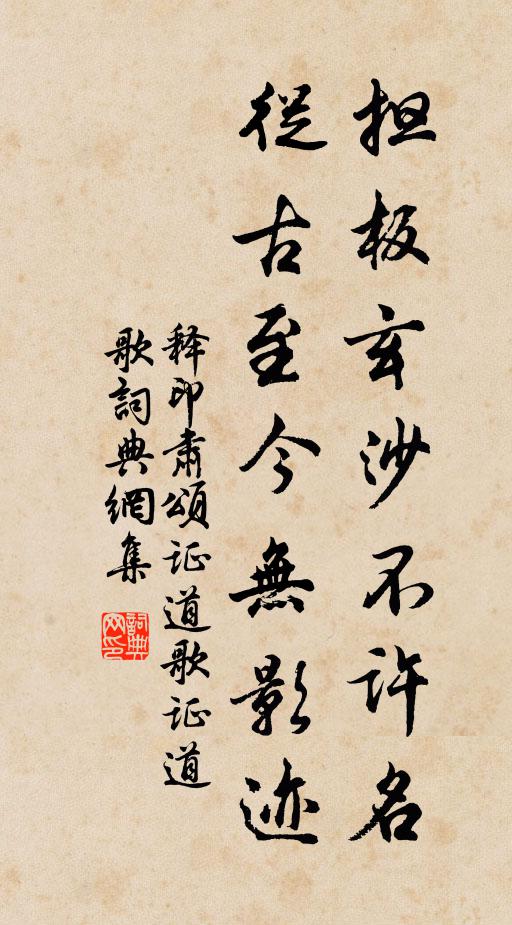 担板玄沙不许名
從古至今無影迹
释印肃頌证道歌证道
歌詞典網集
詞典网印